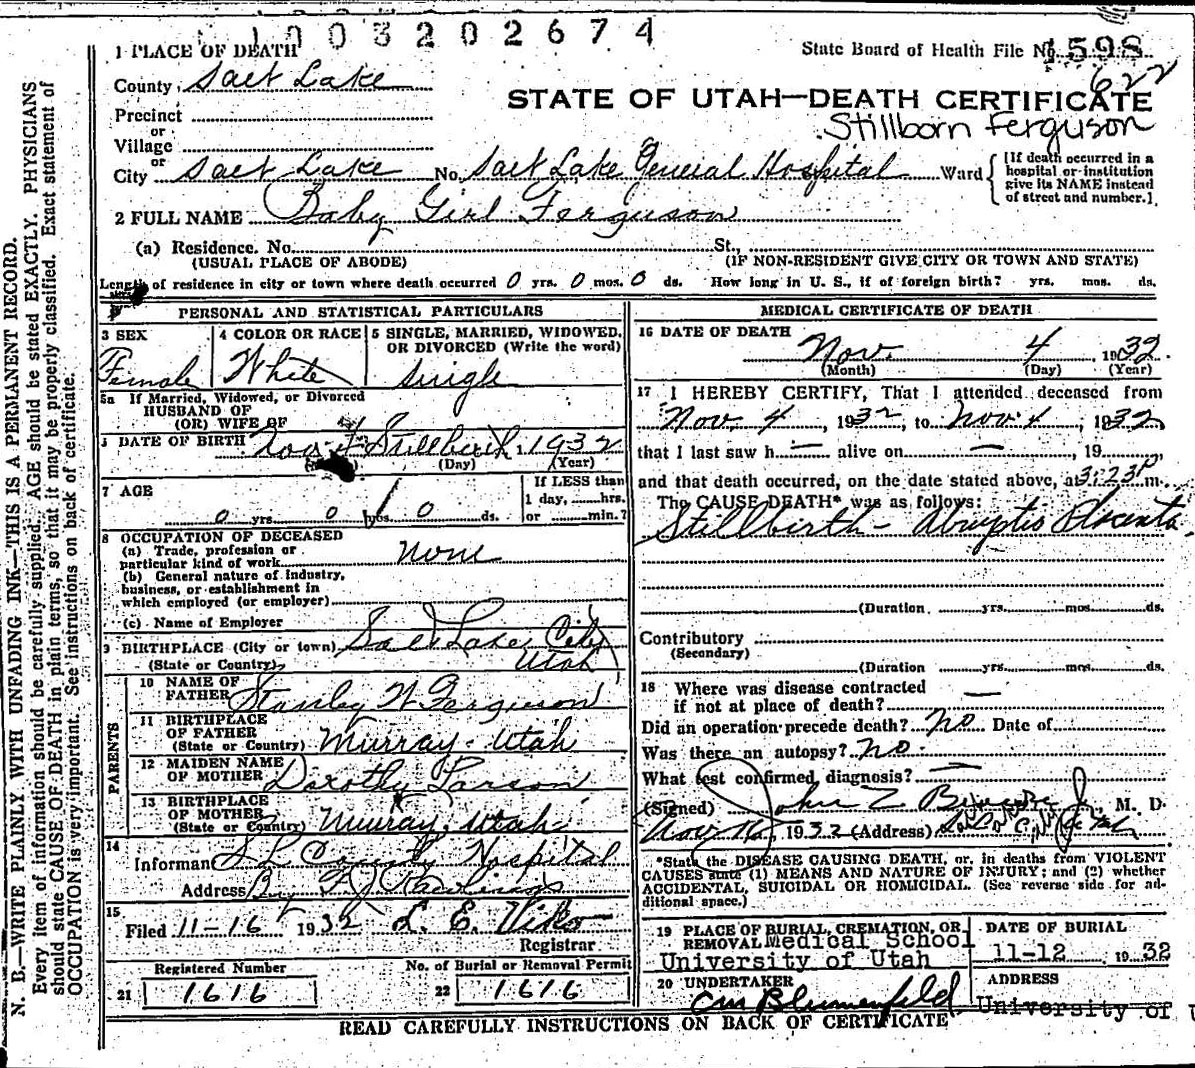 1003202674
1 PLACE OF DEATH
State Board of Health File No. 1598
622
County Salt Lake
STATE OF UTAH—DEATH CERTIFICATE
Stillborn Ferguson
Precinct
or
Village
or
City Salt Lake No. Salt Lake General Hospital Ward
[If death occurred in a hospital or institution give its NAME instead of street and number.]
2 FULL NAME Baby Girl Ferguson
(a) Residence. No. St.,
(USUAL PLACE OF ABODE) (IF NON-RESIDENT GIVE CITY OR TOWN AND STATE)
Length of residence in city or town where death occurred 0 yrs. 0 mos. 0 ds. How long in U. S., if of foreign birth? yrs. mos. ds.
PERSONAL AND STATISTICAL PARTICULARS
3 SEX Female
4 COLOR OR RACE White
5 SINGLE, MARRIED, WIDOWED, OR DIVORCED (Write the word) Single
5a If Married, Widowed, or Divorced
HUSBAND OF
(OR) WIFE OF
DATE OF BIRTH Nov. 4 Stillbirth, 1932
(Day) (Year)
7 AGE
0 yrs. 0 mos. 0 ds.
If LESS than
1 day, hrs.
or min.?
8 OCCUPATION OF DECEASED
(a) Trade, profession or
particular kind of work None
(b) General nature of industry,
business, or establishment in
which employed (or employer)
(c) Name of Employer
9 BIRTHPLACE (City or town) Salt Lake City
(State or Country) Utah
PARENTS
10 NAME OF FATHER Stanley W Ferguson
11 BIRTHPLACE OF FATHER
(State or Country) Murray - Utah
12 MAIDEN NAME OF MOTHER Dorothy Larson
13 BIRTHPLACE OF MOTHER
(State or Country) Murray, Utah
14
Informant S L County Hospital
Address By F J Rawlings
15
Filed 11-16 1932 L. E. Viko
Registrar
Registered Number
21 1616
No. of Burial or Removal Permit
22 1616
MEDICAL CERTIFICATE OF DEATH
16 DATE OF DEATH
Nov. 4, 1932
(Month) (Day) (Year)
17 I HEREBY CERTIFY, That I attended deceased from
Nov. 4, 1932, to Nov 4, 1932
that I last saw h— alive on —, 19
and that death occurred, on the date stated above, at 3:23 P m.
The CAUSE DEATH* was as follows:
Stillbirth - Abruptio Placenta
(Duration yrs. mos. ds.
Contributory
(Secondary)
(Duration yrs. mos. ds.
18 Where was disease contracted
if not at place of death? —
Did an operation precede death? No Date of
Was there an autopsy? No
What test confirmed diagnosis? —
(Signed) John Z Jr., M. D.
Nov 16, 1932 (Address)
*State the DISEASE CAUSING DEATH, or, in deaths from VIOLENT
CAUSES state (1) MEANS AND NATURE OF INJURY; and (2) whether
ACCIDENTAL, SUICIDAL OR HOMICIDAL. (See reverse side for ad-
ditional space.)
19 PLACE OF BURIAL, CREMATION, OR
REMOVAL Medical School
University of Utah
DATE OF BURIAL
11-12 1932
20 UNDERTAKER
CM Blumenfeld
ADDRESS
University of
READ CAREFULLY INSTRUCTIONS ON BACK OF CERTIFICATE
N. B.—WRITE PLAINLY WITH UNFADING INK—THIS IS A PERMANENT RECORD.
Every item of information should be carefully supplied. AGE should be stated EXACTLY. PHYSICIANS
should state CAUSE OF DEATH in plain terms, so that it may be properly classified. Exact statement of
OCCUPATION is very important. See instructions on back of certificate.